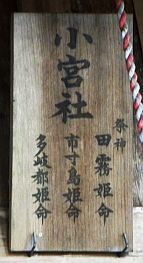 小宮社
祭神
田霧姫命
市寸島姫命
多岐都姫命